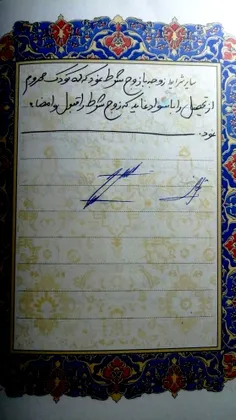 سایر شرایط: زوجه با زوج شرط نمود که کودک محروم
از تحصیل را با سواد نماید که زوج شرط را قبول و امضاء
نمود.